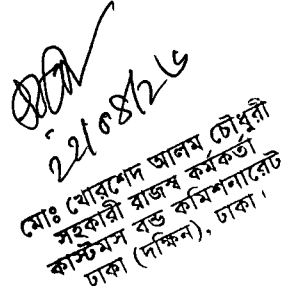 ২২/০৪/২৬
মোঃ খোরশেদ আলম চৌধুরী
সহকারী রাজস্ব কর্মকর্তা
কাস্টমস বন্ড কমিশনারেট
ঢাকা (দক্ষিন), ঢাকা।